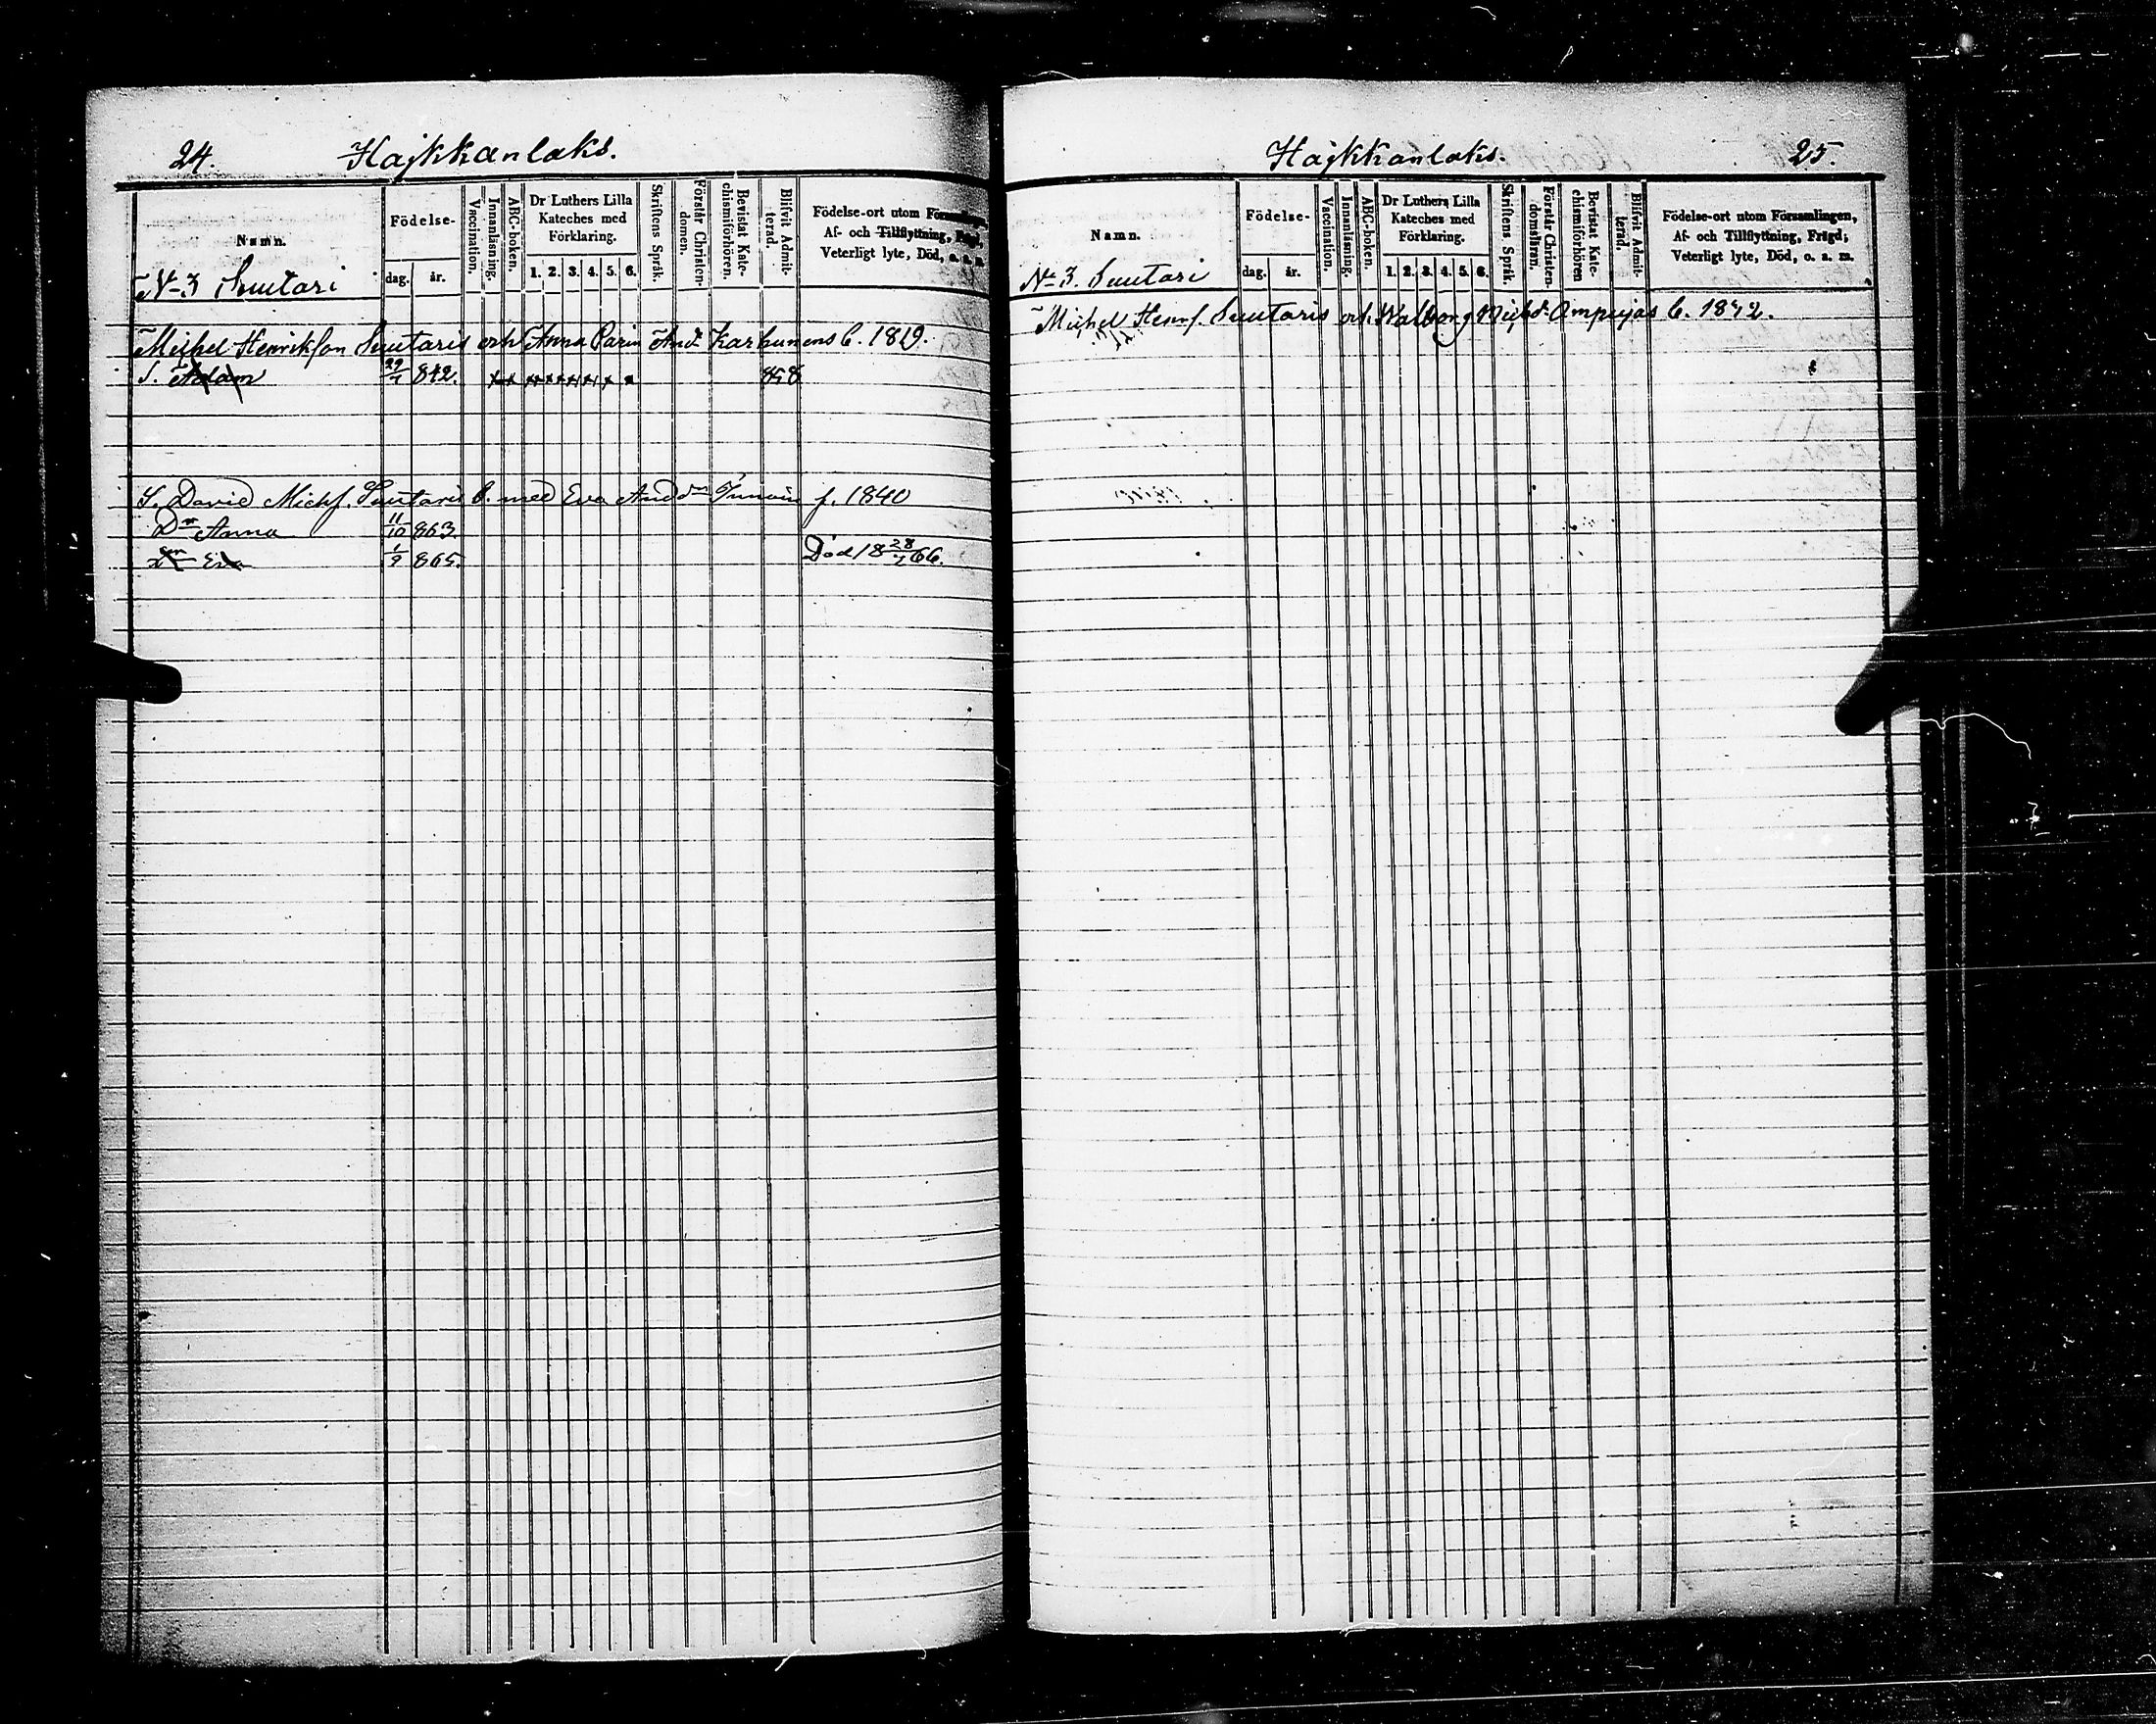 24. Hajkkanlaks.
Namn.
Födelse-
dag. år.
Vaccination.
Innanläsning.
ABC-boken.
Dr Luthers Lilla
Kateches med
Förklaring.
1. 2. 3. 4. 5. 6.
Skriftens Språk.
Förstår Christen-
domen.
Bevistat Kate-
chismiförhören.
Blifvit Admit-
terad.
Födelse-ort utom Församlingen,
Af- och Tillflyttning, Frägd,
Veterligt lyte, Död, o. a. m.
No 3 Suutari
Michel Henrikson Suutaris och Anna Carin And. Karhunens b. 1819.
S. Adam 29/7 842. 858
S. David Michs. Suutaris b. med Eva And dr f. 1840
Dr Anna 11/10 863
Dr Eva 1/9 865. Död 18 28/7 66.
Hajkkanlaks. 25.
Namn.
Födelse-
dag. år.
Vaccination.
Innanläsning.
ABC-boken.
Dr Luthers Lilla
Kateches med
Förklaring.
1. 2. 3. 4. 5. 6.
Skriftens Språk.
Förstår Christen-
domsläran.
Bevistat Kate-
chismiförhören
Blifvit Admit-
terad.
Födelse-ort utom Församlingen,
Af- och Tillflyttning, Frägd,
Veterligt lyte, Död, o. a. m.
No 3. Suutari
Michel Henr. Suutaris och Walborg Mich dr Ampujas b. 1842.